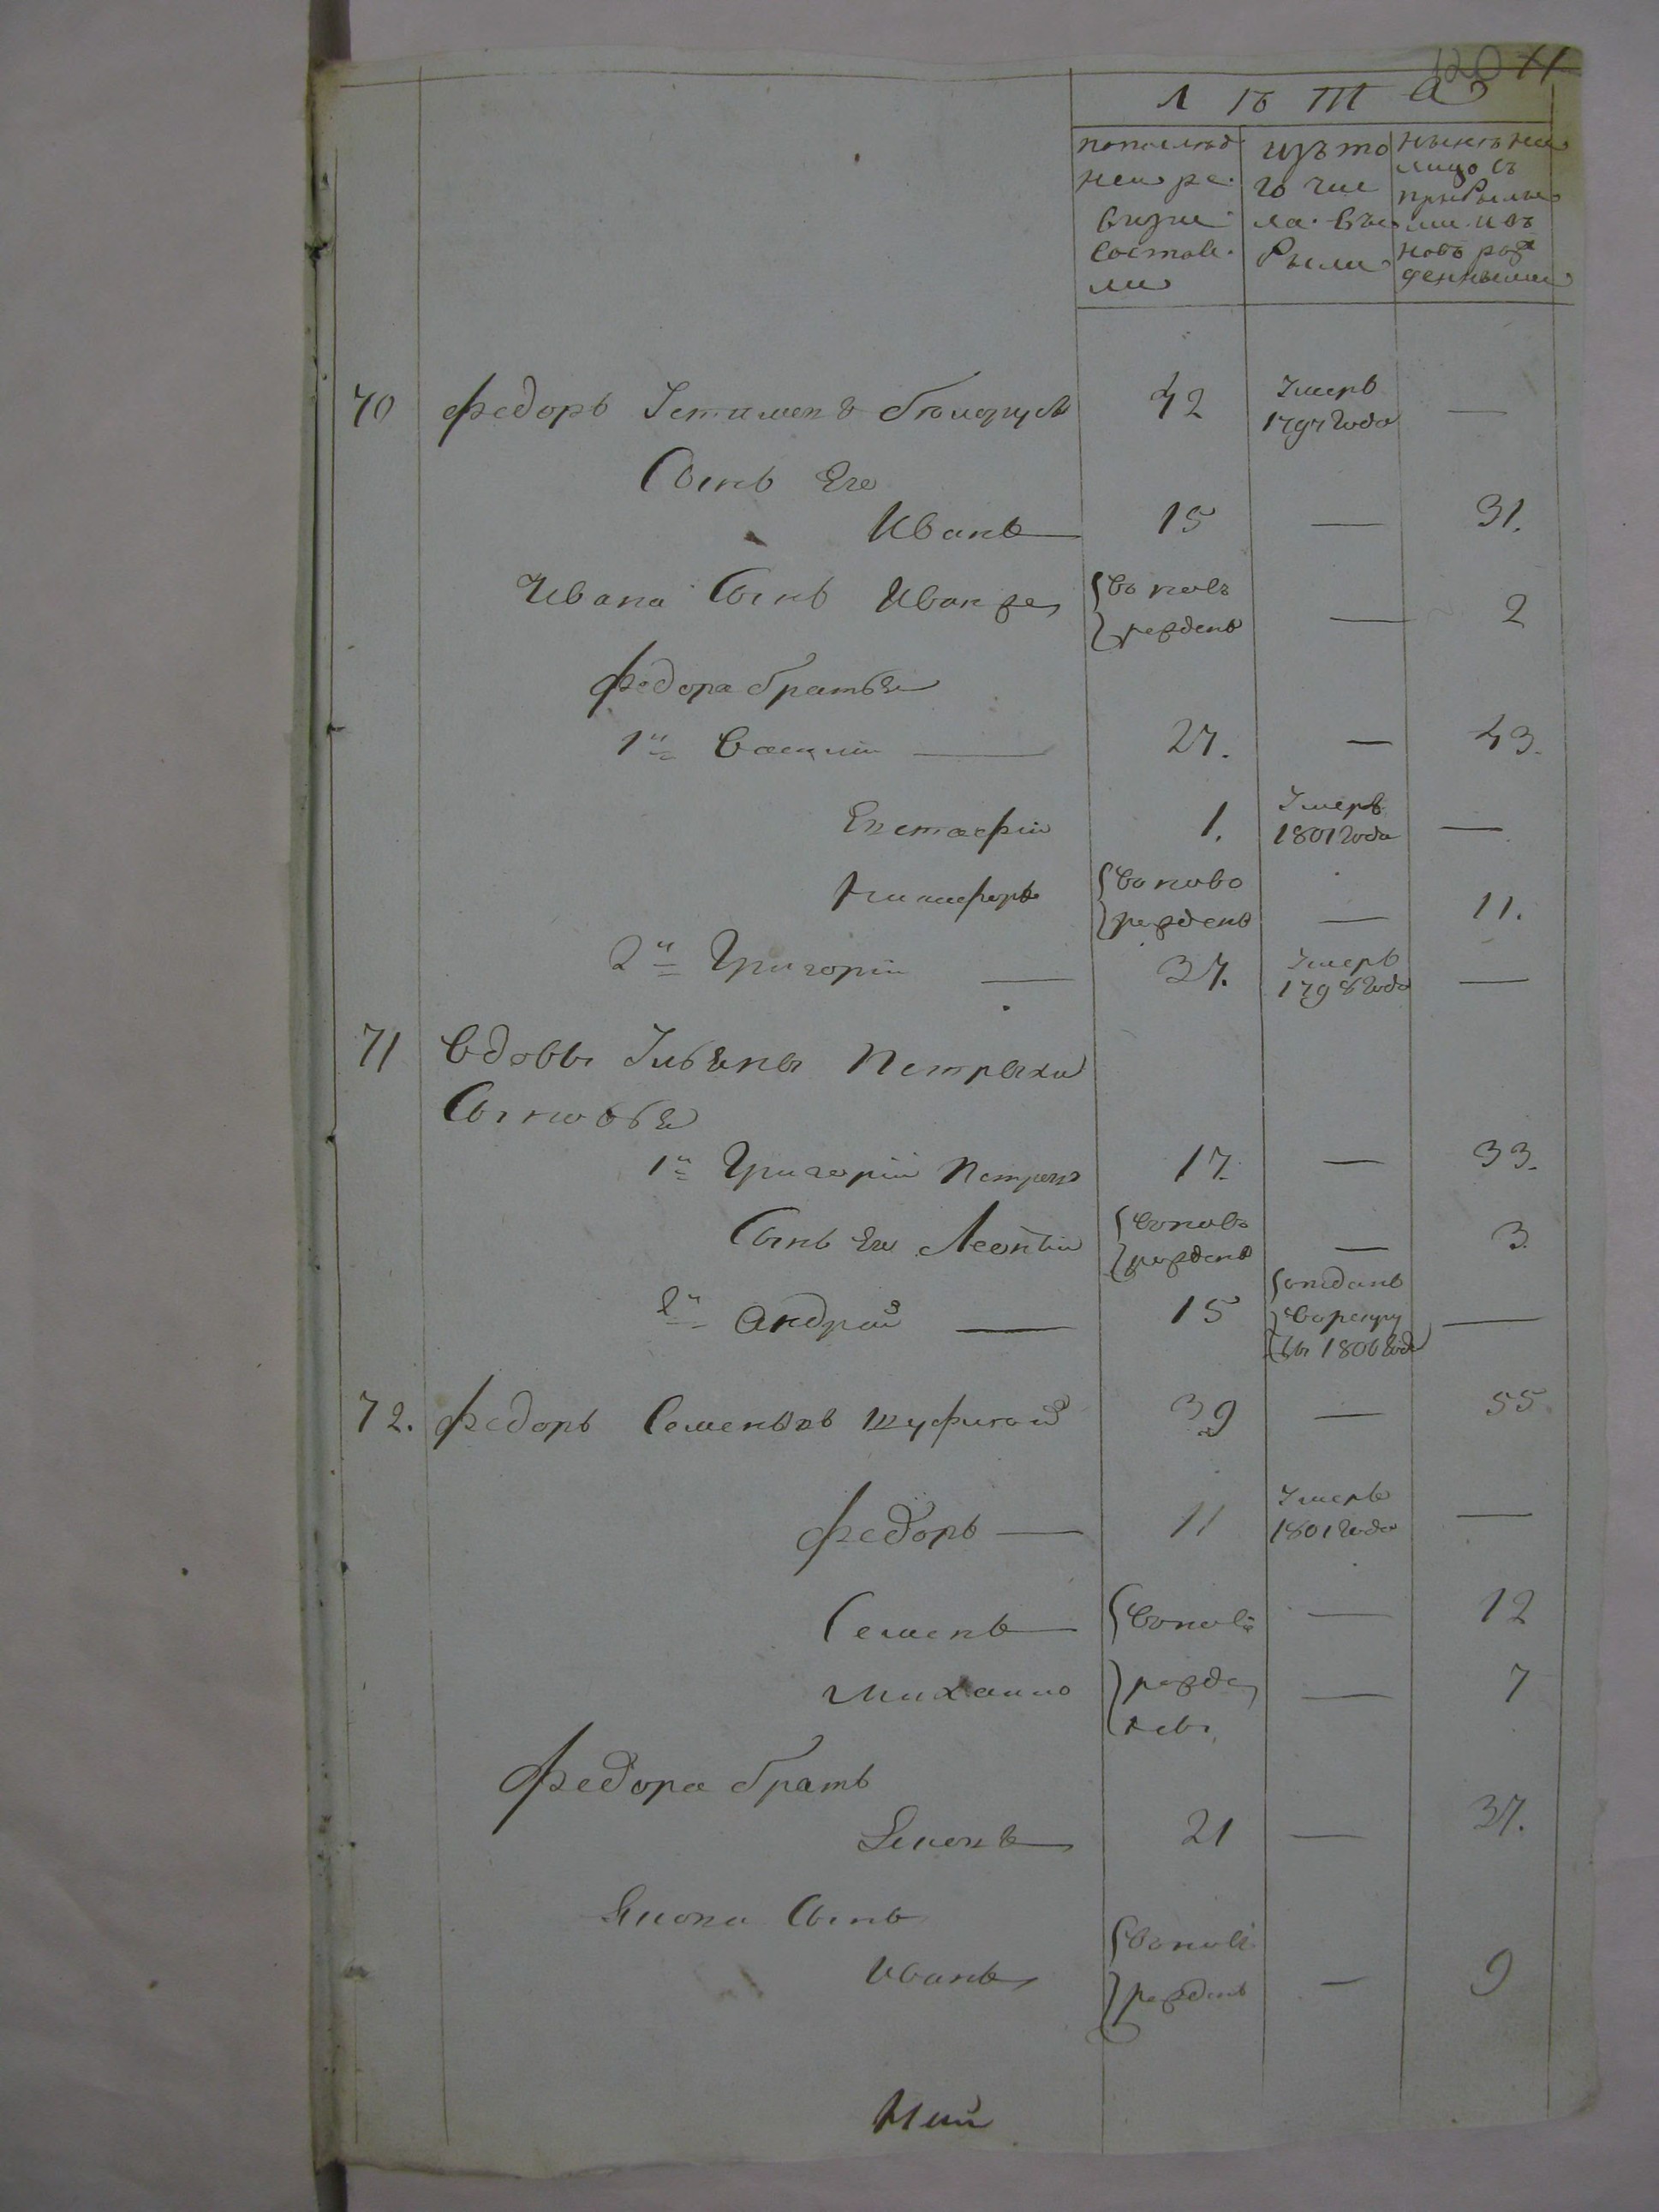 120 11
Лѣта
попослѣд
ней ре
визіи
состоя
ли
изъ то
го чис
ла вы
были
нынѣ на
лицо съ
прибылы
ми и въ
новь рож
денными
70 Федоръ 42 Умеръ —
1797 года
Сынъ Его
Иванъ 15 — 31.
Ивана Сынъ Иван же вновь — 2
рожденъ
Федора братья
1й Василій 27. — 43.
Евстафій 1. Умеръ —
1801 года
Никифоръ вново — 11.
рожденъ
2й Григорій 37. Умеръ —
1798 года
71 Вдовы Ульяны Петрыхи
Сыновья
1й Григорій Петрою 17. — 33.
Сынъ Его Леонтій вново — 3
рожденъ
2й Андрей 15 отданъ —
в рекру
ты 1806 года
72. Федоръ Семеновъ 39 — 55.
Федоръ 11 Умеръ —
1801 года
Семенъ вновь — 12
Михайло рожде — 7
ны
Федора братъ
21 — 37.
Сынъ
Иванъ вновь — 9
рожденъ